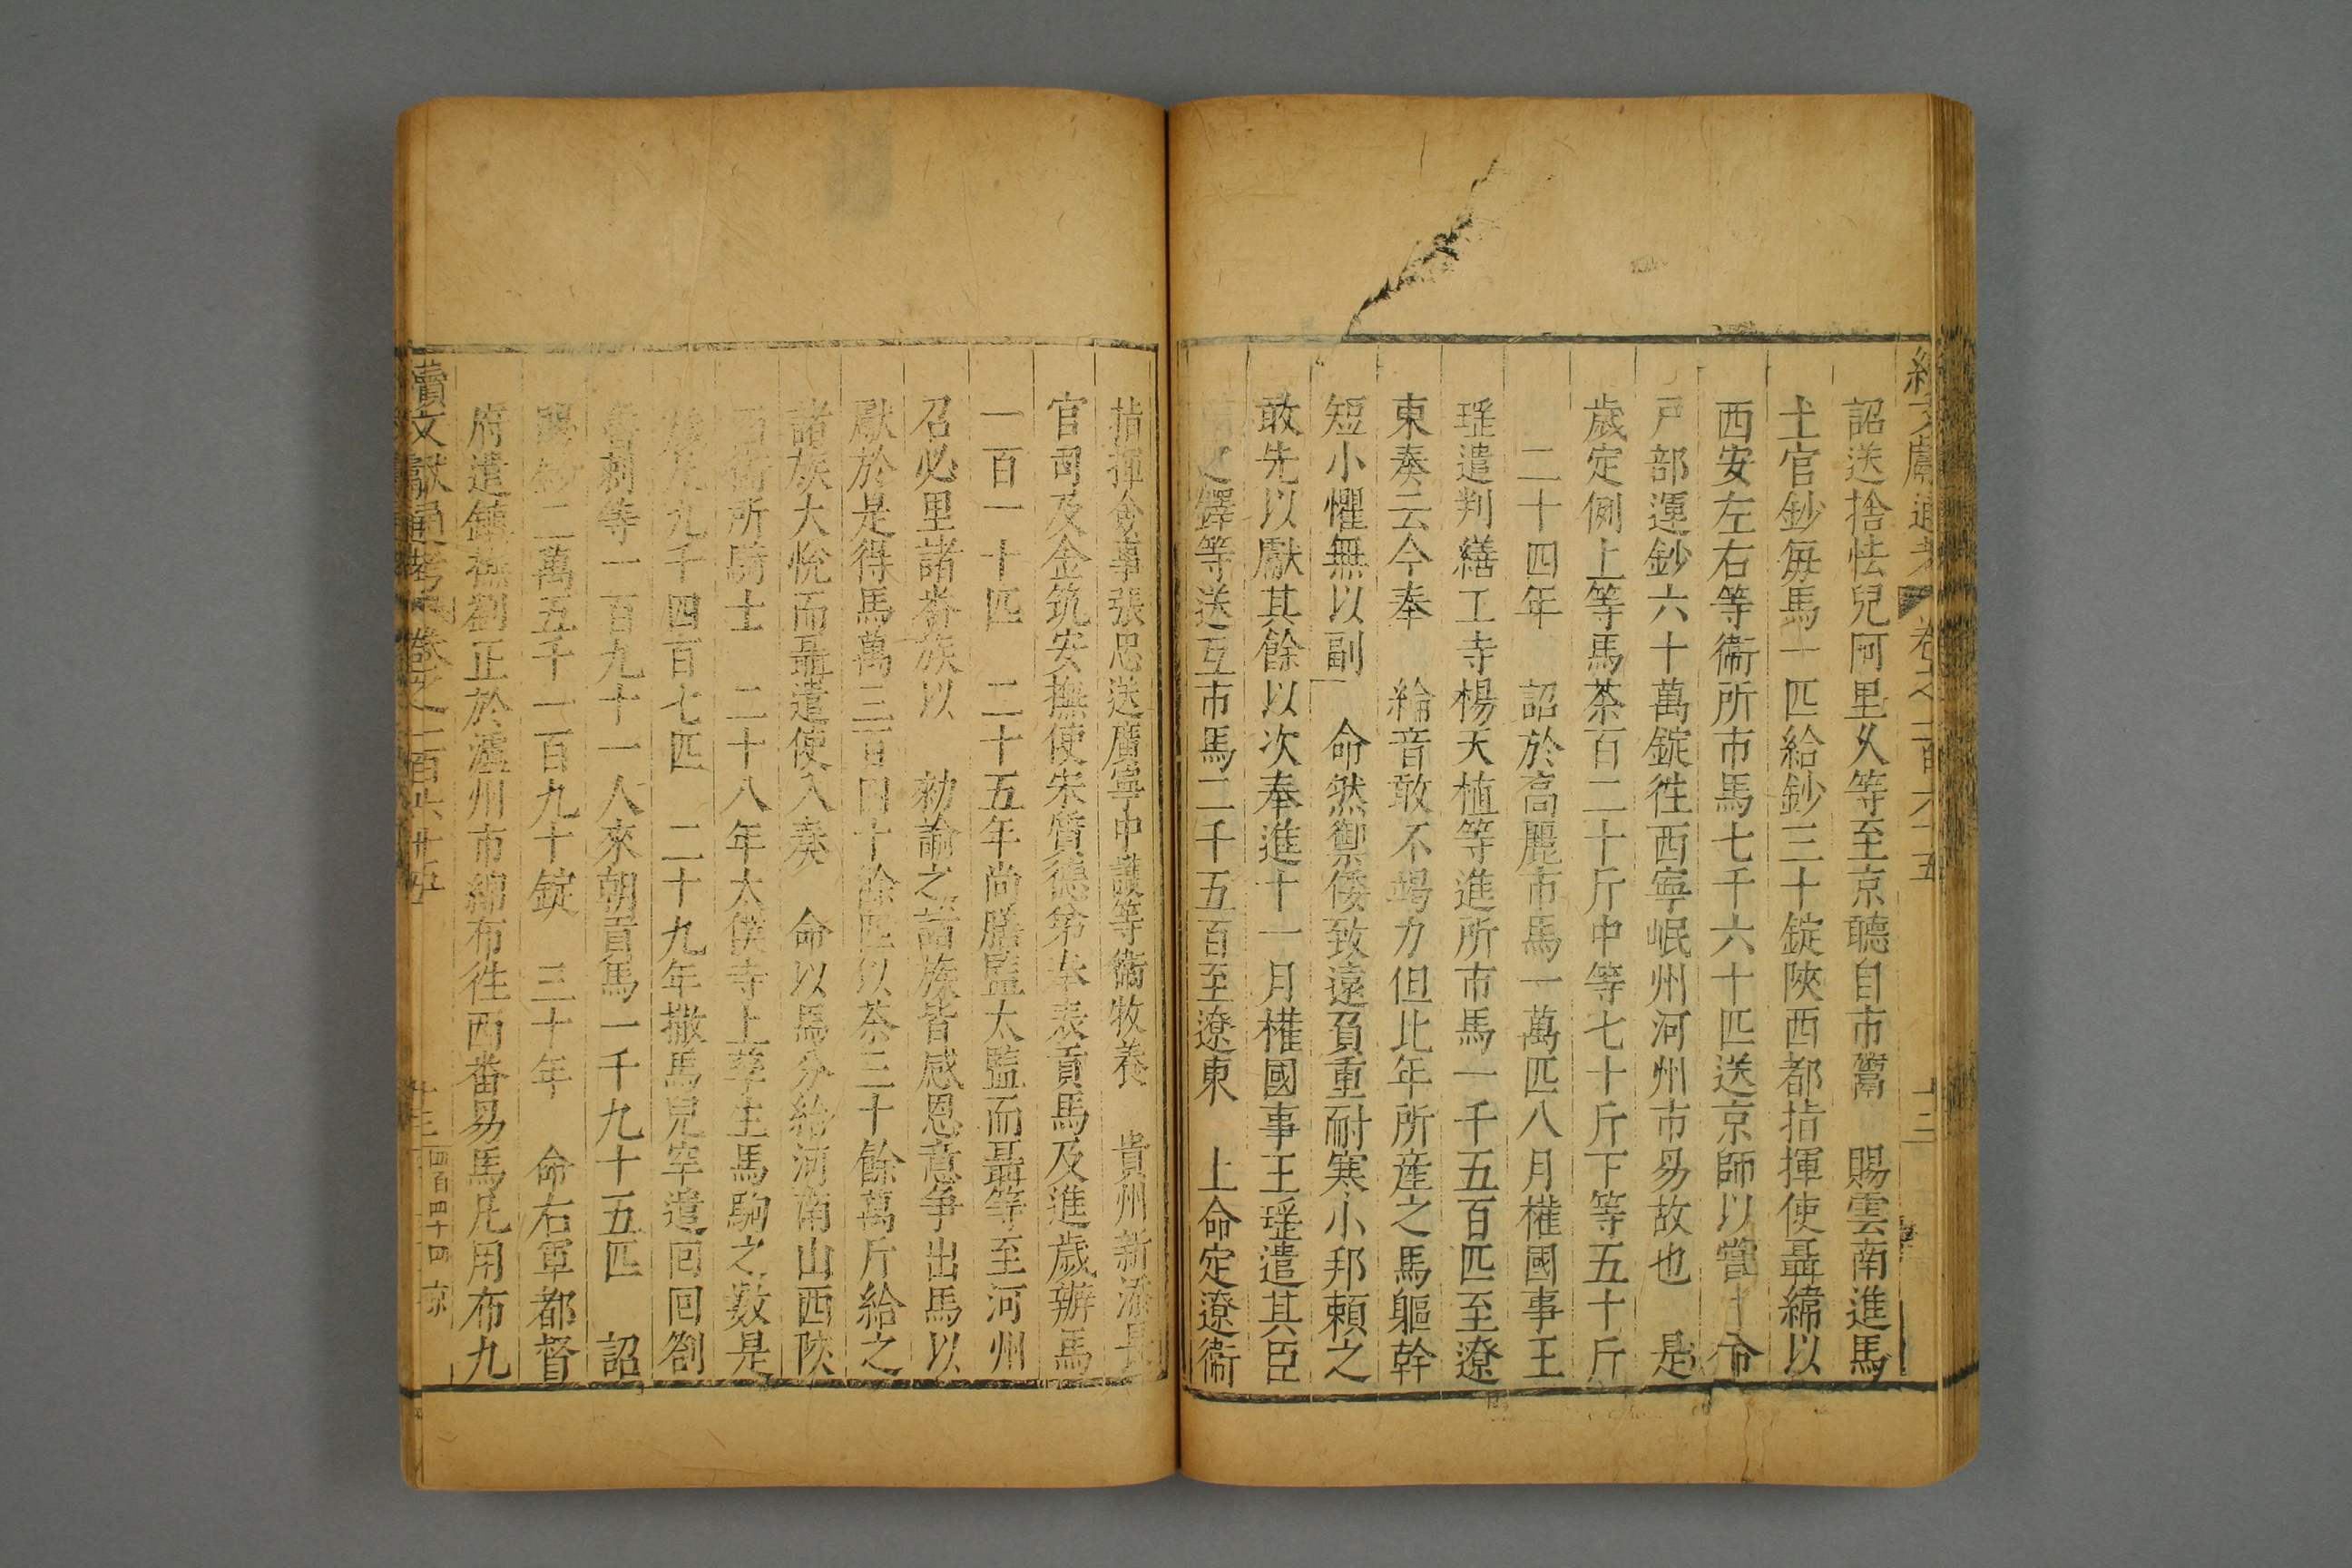 續文獻通考 卷之一百六十五 十三
詔送捨怯兒阿里乆等至京聽自市鬻 賜雲南進馬
土官鈔每馬一匹給鈔三十錠陜西都指揮使聶緯以
西安左右等衞所市馬七千六十匹送京師以 命
戸部運鈔六十萬錠徃西寧岷州河州市易故也 是
歲定例上等馬茶百二十斤中等七十斤下等五十斤
二十四年 詔於高麗市馬一萬匹八月權國事王
瑤遣判繕工寺楊天植等進所市馬一千五百匹至遼
東奏云今奉 綸音敢不竭力但此年所産之馬軀幹
短小懼無以副 命然禦倭致遠負重耐寒小邦賴之
敢先以獻其餘以次奉進十一月權國事王瑤遣其臣
之鐸等送互市馬二千五百至遼東 上命定遼衞
指揮僉事張忠送廣寧中護等衞牧養 貴州新添長
官司及金筑安撫使宋賞德等奉表貢馬及進歲辦馬
一百一十匹 二十五年尚膳監太監而聶等至河州
召必里諸番族以 勑諭之諸族皆感恩意爭出馬以
獻於是得馬萬三百四十餘匹以茶三十餘萬斤給之
諸族大悅而聶遣使入奏 命以馬分給河南山西陜
西衞所騎士 二十八年太僕寺上孳生馬駒之數是
歲凡九千四百七匹 二十九年撒馬兒罕遣回回劄
魯剌等一百九十一人來朝貢馬一千九十五匹 詔
賜鈔二萬五千一百九十錠 三十年 命右軍都督
府遣鎮撫劉正於瀘州市綿布徃西番易馬凡用布九
續文獻通考 卷之一百六十五 十三 四百四十四